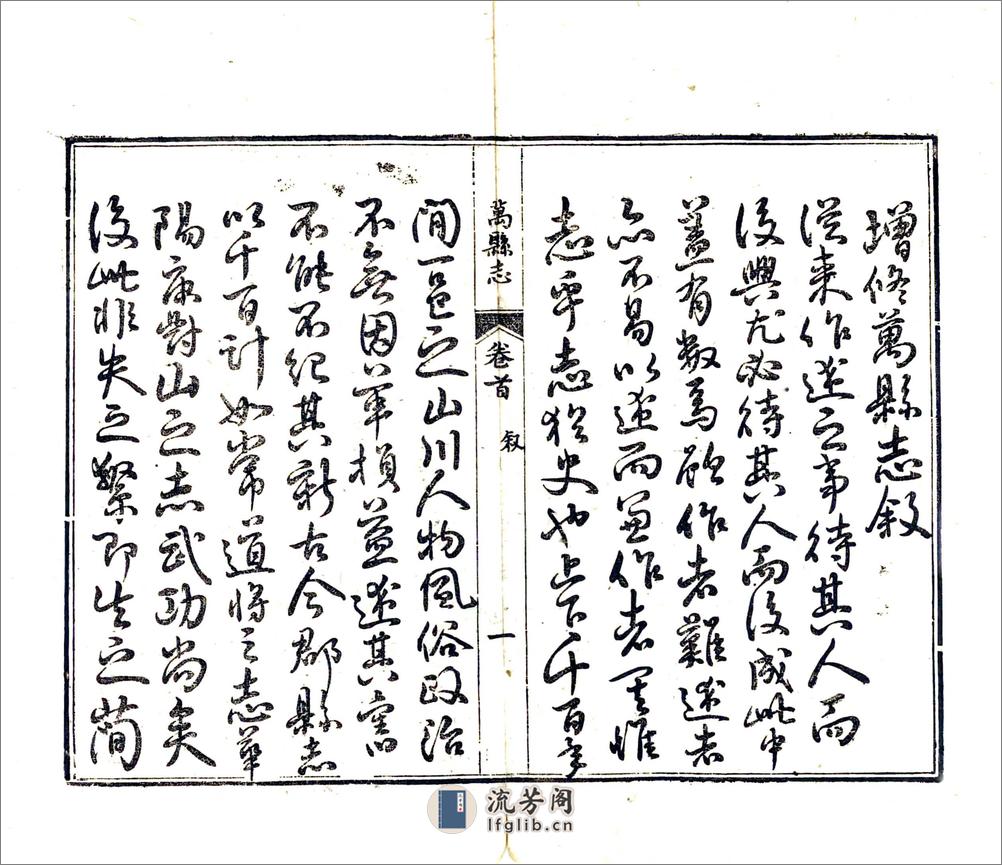 增修萬縣志叙
從来作述之事待其人而
後興尤必待其人而後成此中
葢有数焉顧作者難述者
亦不易以述而兼作者其惟
志乎志猶史也上下千百年
萬縣志
卷首
叙
一
間一邑之山川人物風俗政治
不無因革損益述其舊
不能不紀其新古今郡縣志
以千百計如常道將之志華
陽康對山之志武功尚矣
後此非失之繁即失之簡
流芳阁
lfglib.cn